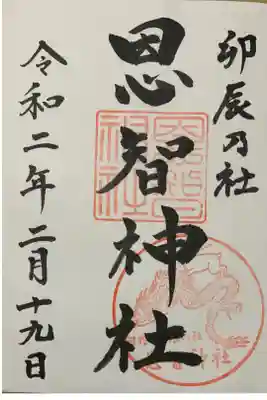 卯辰乃社
恩智神社
令和二年二月十九日